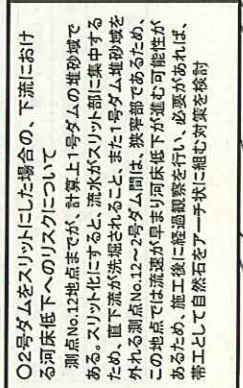 ○2号ダムをスリットにした場合の、下流におけ
る河床低下へのリスクについて
測点No.12地点までが、計算上1号ダムの堆砂域で
ある。スリット化にすると、流水がスリット部に集中する
ため、直下流が洗堀されること、また1号ダム堆砂域を
外れる測点No.12～2号ダム間は、狭窄部であるため、
この地点では流速が早まり河床低下が進む可能性が
あるため、施工後に経過観察を行い、必要があれば、
帯工として自然石をアーチ状に組む対策を検討